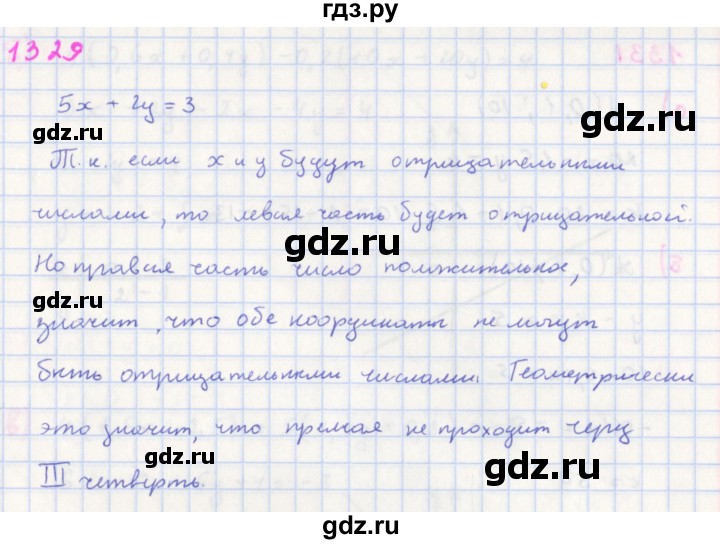 гдз.ру
1329
5x + 2y = 3
gdz.ru
gdz.ru
Т.к. если x и y будут отрицательными
числами, то левая часть будет отрицательной.
gdz.ru
Но правая часть число положительное,
gdz.ru
gdz.ru
значит, что обе координаты не могут
быть отрицательными числами. Геометрически
это значит, что прямая не проходит через
gdz.ru
gdz.ru
III четверть.
gdz.ru